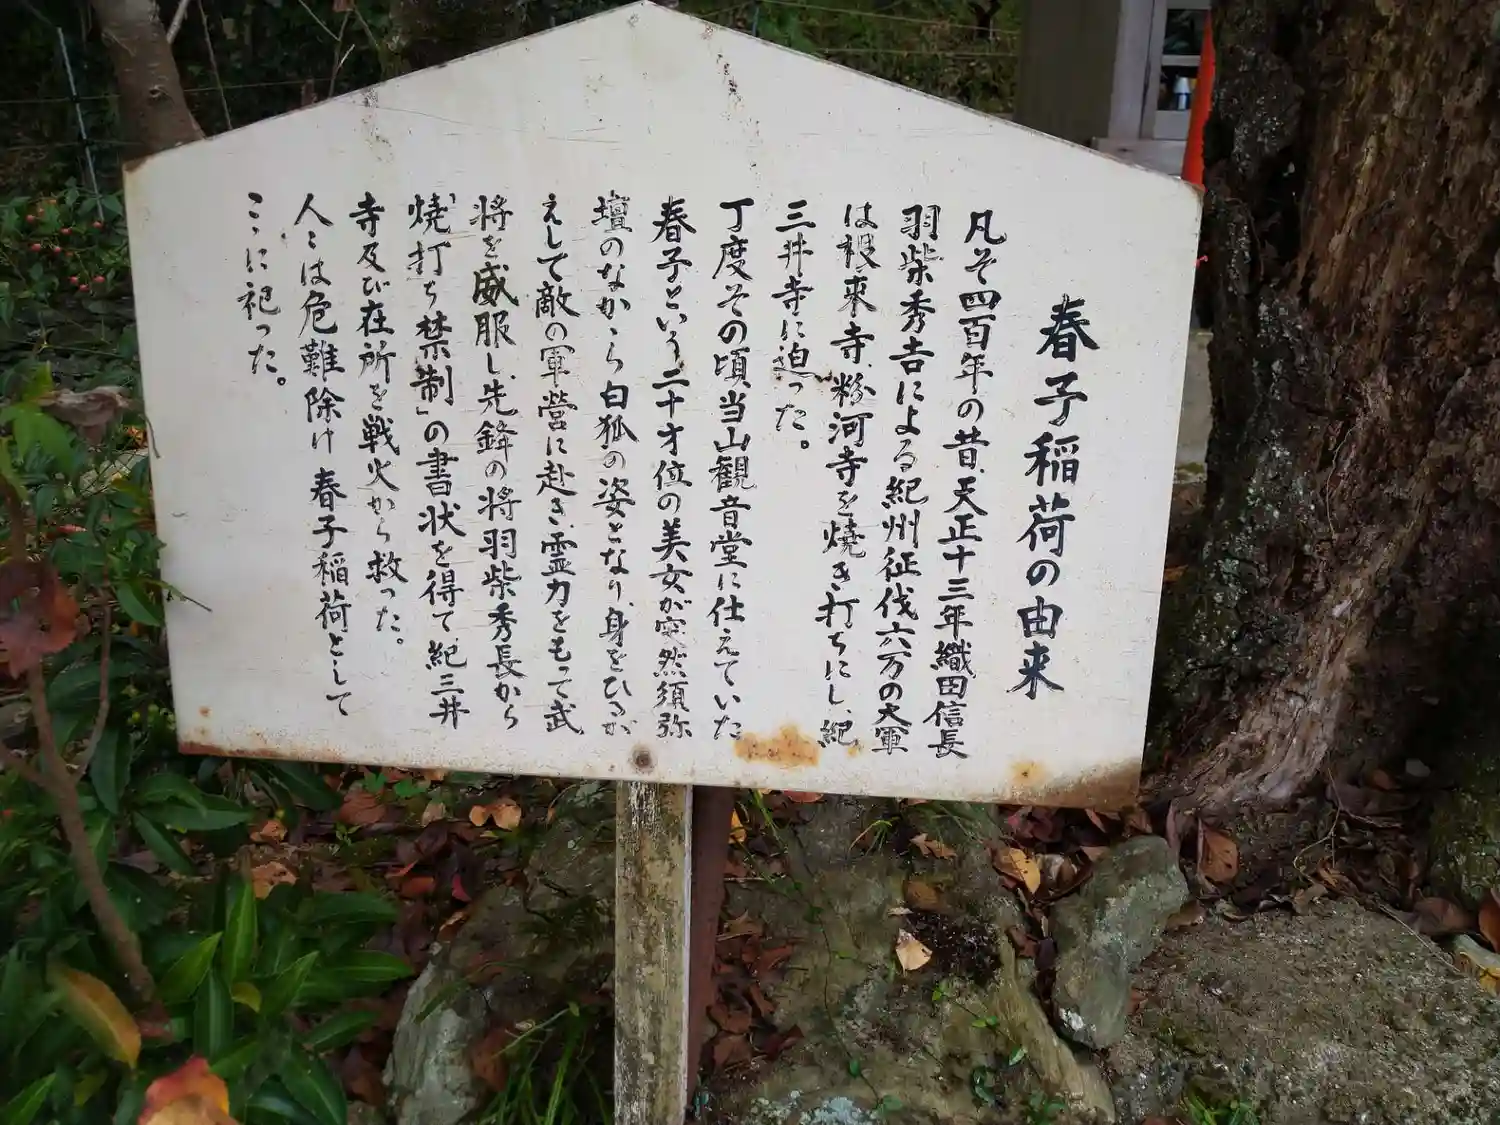 春子稲荷の由来
凡そ四百年の昔、天正十三年織田信長
羽柴秀吉による紀州征伐六万の大軍
は根来寺、粉河寺を焼き打ちにし、紀
三井寺に迫った。
丁度その頃、当山観音堂に仕えていた
春子という、二十才位の美女が突然須弥
壇のなかから白狐の姿となり、身をひるが
えして敵の軍営に赴き、霊力をもって武
将を威服し、先鋒の将羽柴秀長から
「焼打ち禁制」の書状を得て、紀三井
寺及び在所を戦火から救った。
人々は危難除け 春子稲荷として
ここに祀った。